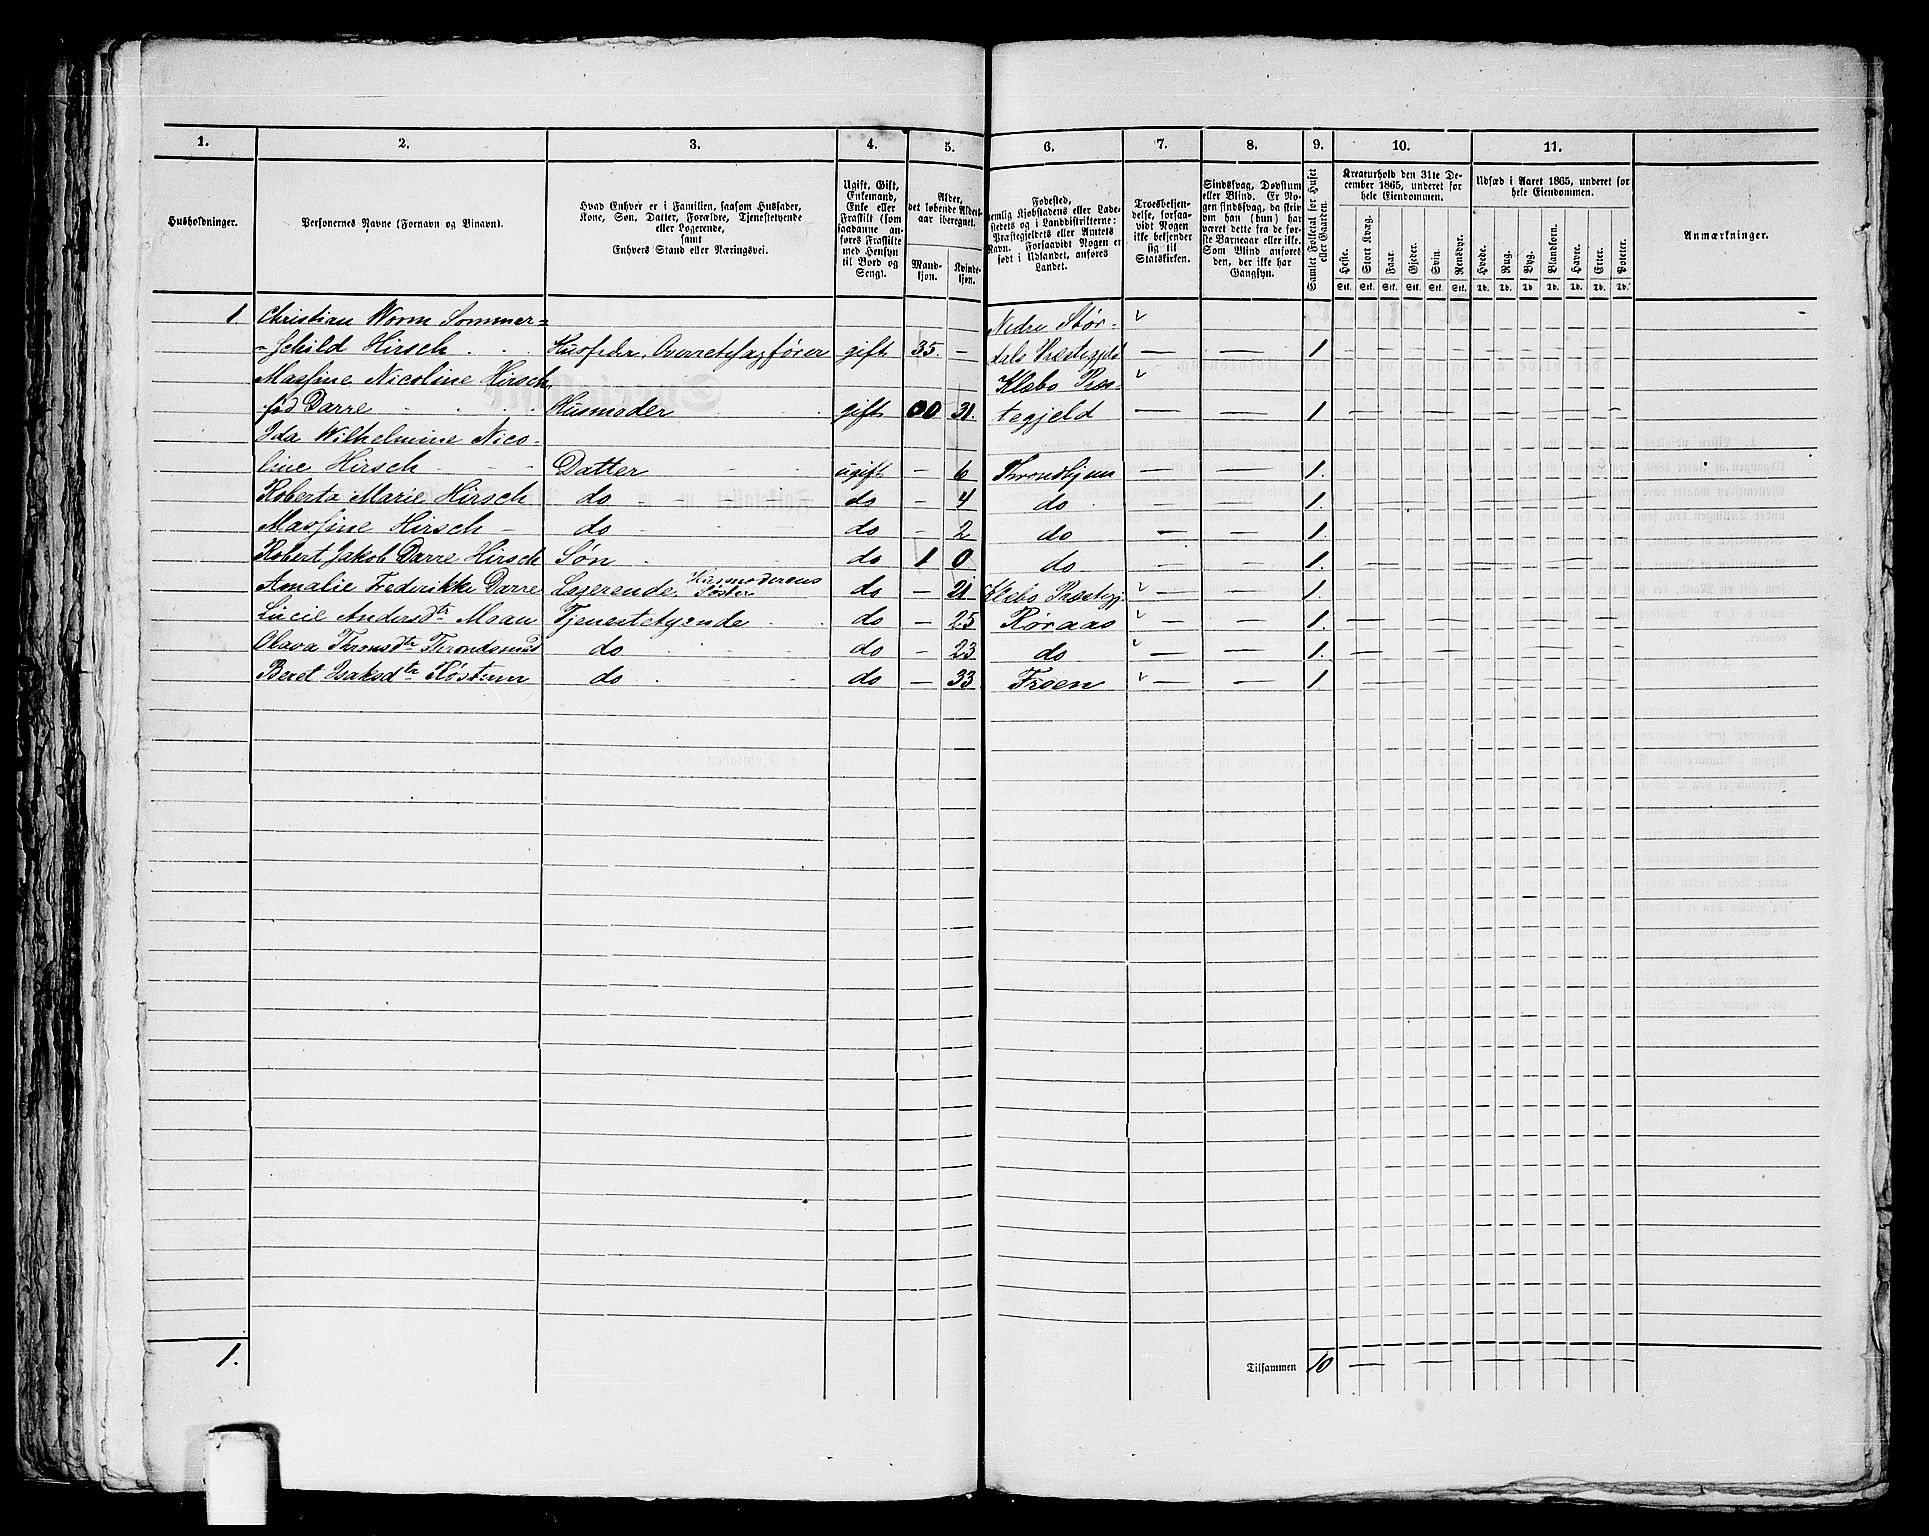 1. 2. 3. 4. 5. 6. 7. 8. 9. 10. 11.
Husholdninger.
Personernes Navne (Fornavn og Binavn).
Hvad Enhver er i Familien, saasom Husfader,
Kone, Søn, Datter, Forældre, Tjenestetyende
eller Logerende,
samt
Enhvers Stand eller Næringsvei.
Ugift, Gift,
Enkemand,
Enke eller
Fraskilt (som
saadanne an-
føres Fraskilte
med Hensyn
til Bord og
Seng).
Alder,
det løbende Alders-
aar iberegnet.
Mand-
kjøn.
Kvinde-
kjøn.
Fødested,
nemlig Kjøbstadens eller Lade-
stedets og i Landdistrikterne:
Præstegjeldets eller Amtets
Navn. Forsaavidt Nogen er
født i Udlandet, anføres
Landet.
Troesbekjen-
delse, forsaa-
vidt Nogen
ikke bekjender
sig til
Statskirken.
Sindssvag, Døvstum
eller Blind. Er No-
gen sindssvag, da skri-
ves han (hun) har
været dette fra de før-
ste Barneaar eller ikke.
Som Blind anføres
den, der ikke har
Gangsyn.
Samlet Folketal for Huset
eller Gaarden.
Kreaturhold den 31te De-
cember 1865, underet for
hele Eiendommen.
Heste. Stort Kvæg. Faar. Gjeder. Svin. Rensdyr.
Stk. Stk. Stk. Stk. Stk. Stk.
Udsæd i Aaret 1865, underet for
hele Eiendommen.
Hvede. Rug. Byg. Blandkorn. Havre. Erter. Poteter.
Td. Td. Td. Td. Td. Td. Td.
Anmærkninger.
1. Christian Worm Sommer= Nedre Stør-
-schild Hirsch Husfader, Overretssagfører gift 35. — dals Præstegjeld — — 1 — — — — — — — — — — — — —
Massine Nicoline Hirsch Klæbo Præs-
fød Darre Husmoder gift 00 31. tegjeld — — 1. — — — — — — — — — — — — —
Ida Wilhelmine Nico-
line Hirsch Datter ugift — 6 Throndhjem — — 1.
Roberta Marie Hirsch do do — 4 do — — 1.
Massine Hirsch — do do — 2 do — — 1.
Robert Jakob Darre Hirsch Søn do 1 0 do — — 1.
Amalie Frederikke Darre Logerende, Husmoderens Søster do — 21 Klæbo Præstegj. — — 1.
Lucie Andersdtr Moan Tjenestetyende do — 25 Røraas — — 1.
Olava Thronsdtr do do — 23 do — — 1.
Beret Isaksdtr do do — 33 — — 1
1. Tilsammen 10